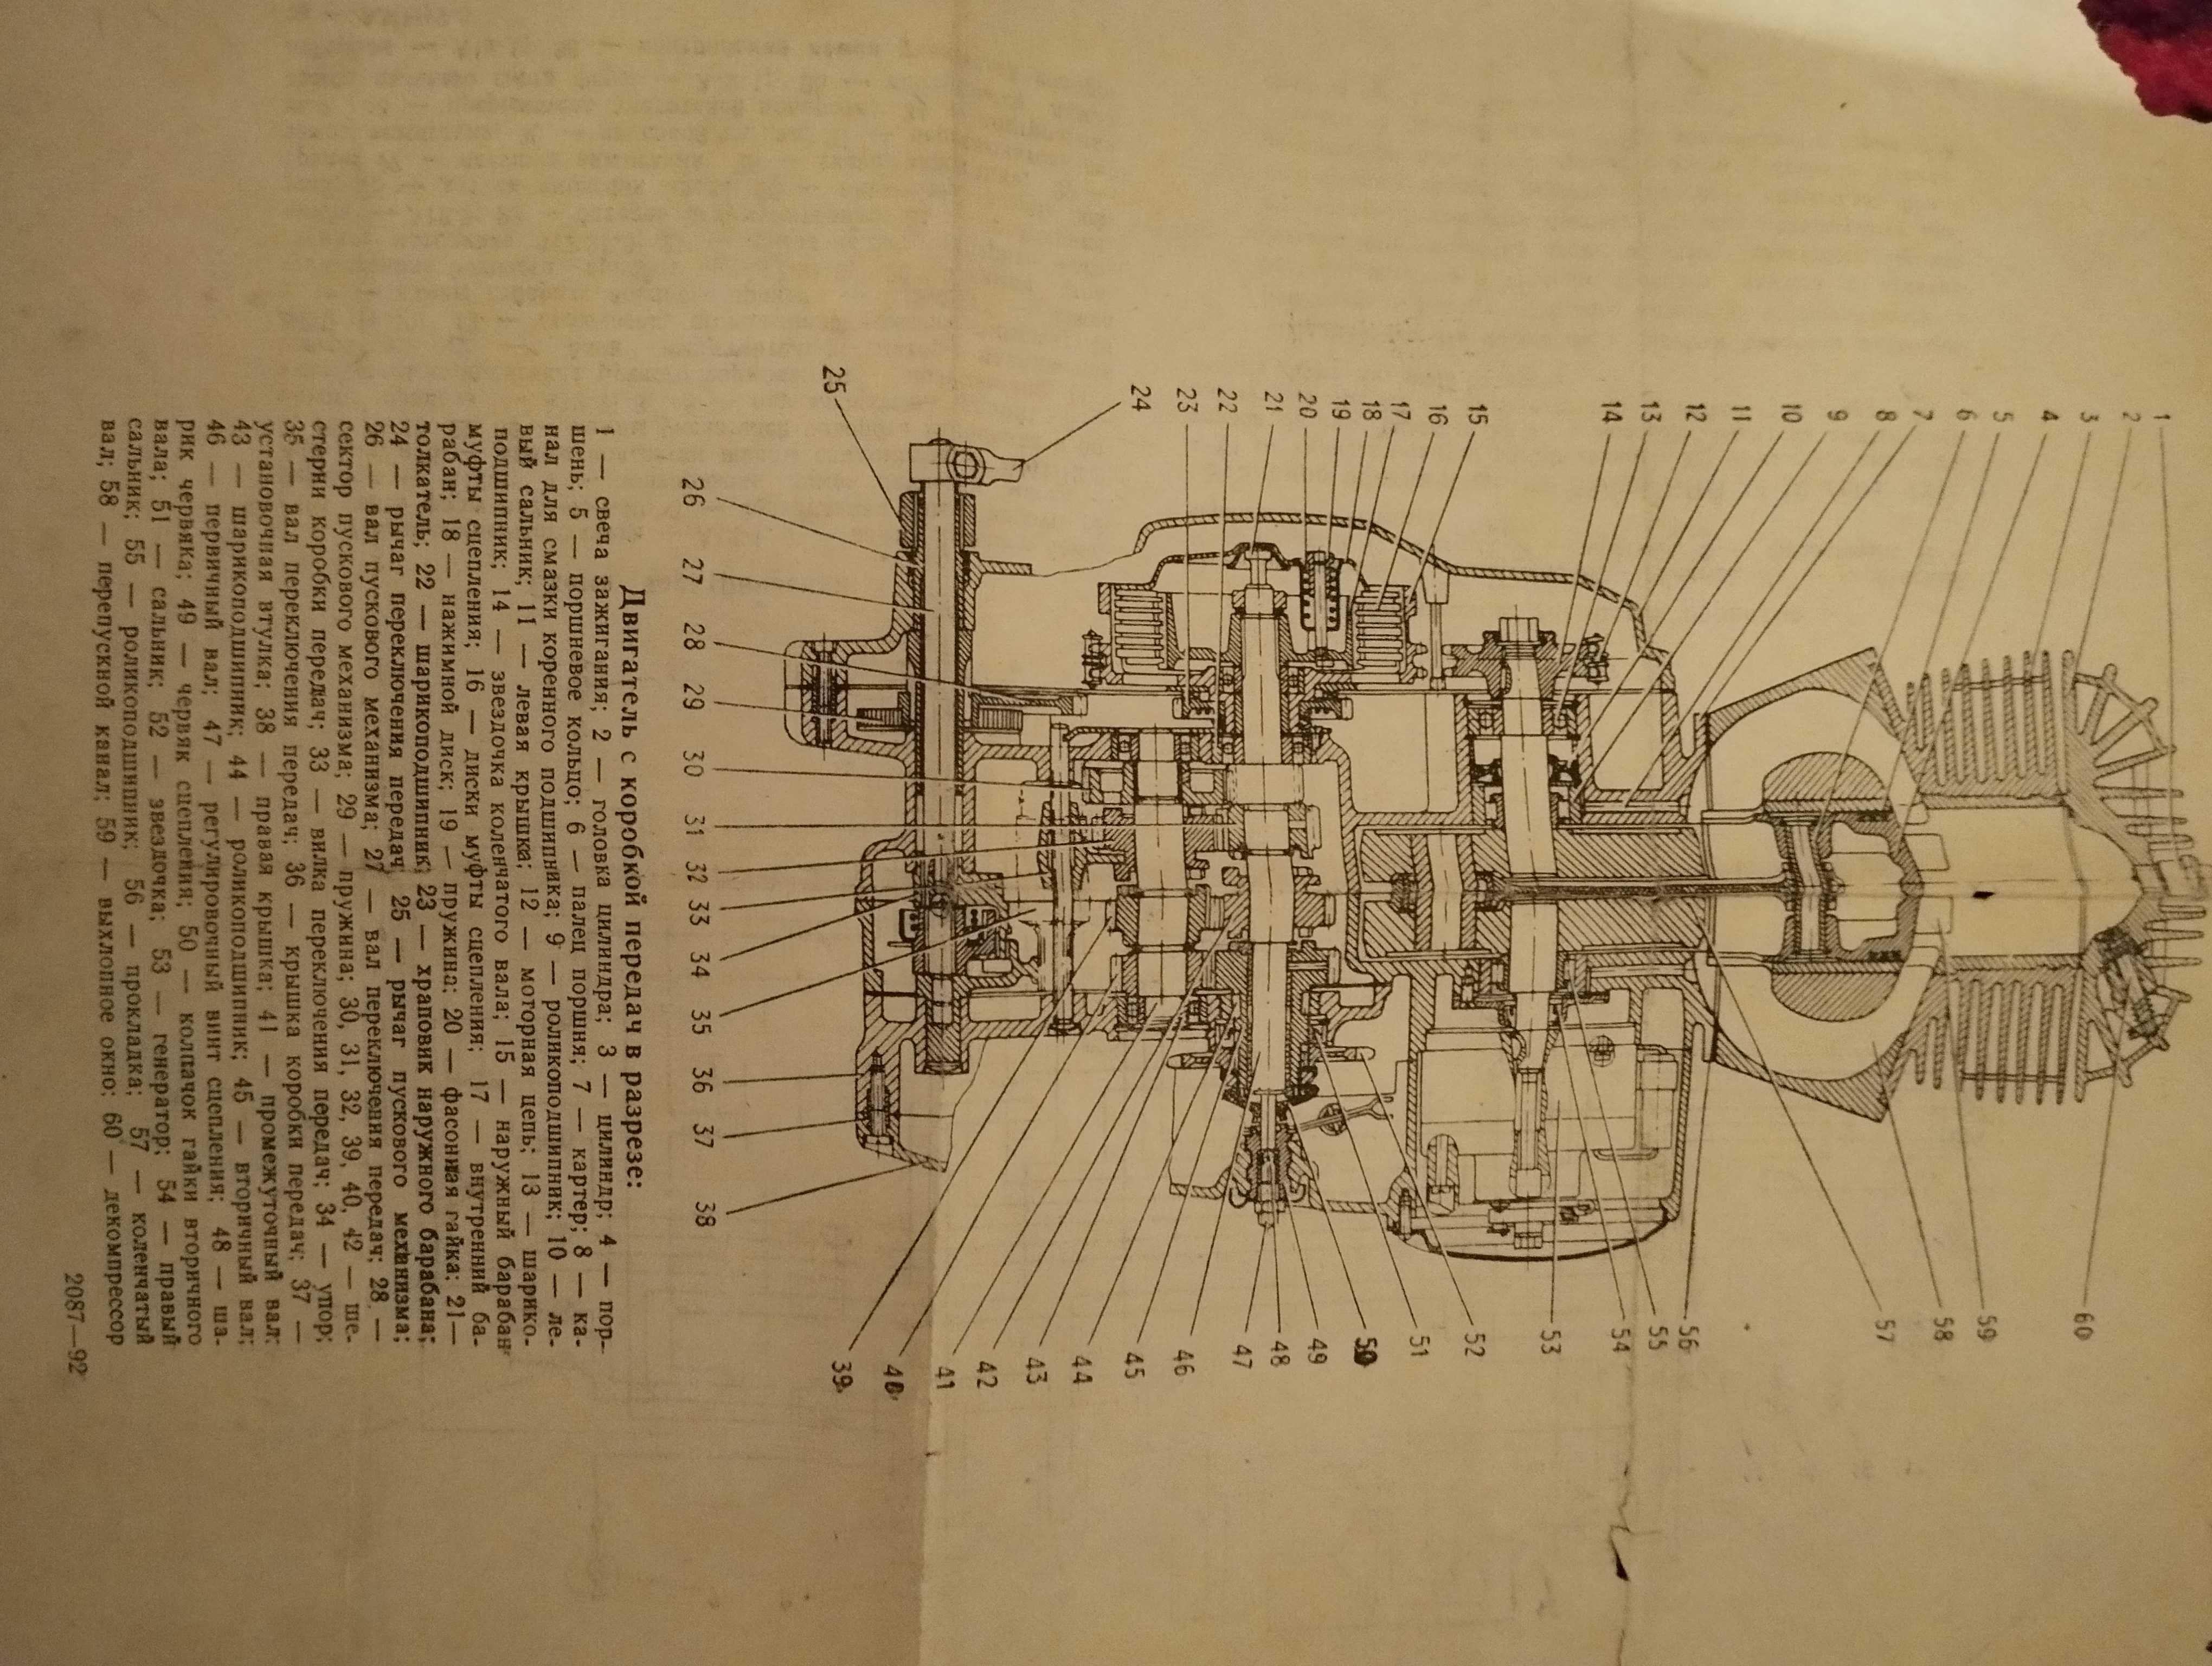 1
2
3
4
5
6
7
8
9
10
11
12
13
14
15
16
17
18
19
20
21
22
23
24
25
26
27
28
29
30
31
32
33
34
35
36
37
38
39
40
41
42
43
44
45
46
47
48
49
50
51
52
53
54
55
56
57
58
59
60
Двигатель с коробкой передач в разрезе:
1 — свеча зажигания; 2 — головка цилиндра; 3 — цилиндр; 4 — пор-
шень; 5 — поршневое кольцо; 6 — палец поршня; 7 — картер; 8 — ка-
нал для смазки коренного подшипника; 9 — роликоподшипник; 10 — ле-
вый сальник; 11 — левая крышка; 12 — моторная цепь; 13 — шарико-
подшипник; 14 — звездочка коленчатого вала; 15 — наружный барабан
муфты сцепления; 16 — диски муфты сцепления; 17 — внутренний ба-
рабан; 18 — нажимной диск; 19 — пружина; 20 — фасонная гайка; 21 —
толкатель; 22 — шарикоподшипник; 23 — храповик наружного барабана;
24 — рычаг переключения передач; 25 — рычаг пускового механизма;
26 — вал пускового механизма; 27 — вал переключения передач; 28 —
сектор пускового механизма; 29 — пружина; 30, 31, 32, 39, 40, 42 — ше-
стерни коробки передач; 33 — вилка переключения передач; 34 — упор;
35 — вал переключения передач; 36 — крышка коробки передач; 37 —
установочная втулка; 38 — правая крышка; 41 — промежуточный вал;
43 — шарикоподшипник; 44 — роликоподшипник; 45 — вторичный вал;
46 — первичный вал; 47 — регулировочный винт сцепления; 48 — ша-
рик червяка; 49 — червяк сцепления; 50 — колпачок гайки вторичного
вала; 51 — сальник; 52 — звездочка; 53 — генератор; 54 — правый
сальник; 55 — роликоподшипник; 56 — прокладка; 57 — коленчатый
вал; 58 — перепускной канал; 59 — выхлопное окно; 60 — декомпрессор
2087—92